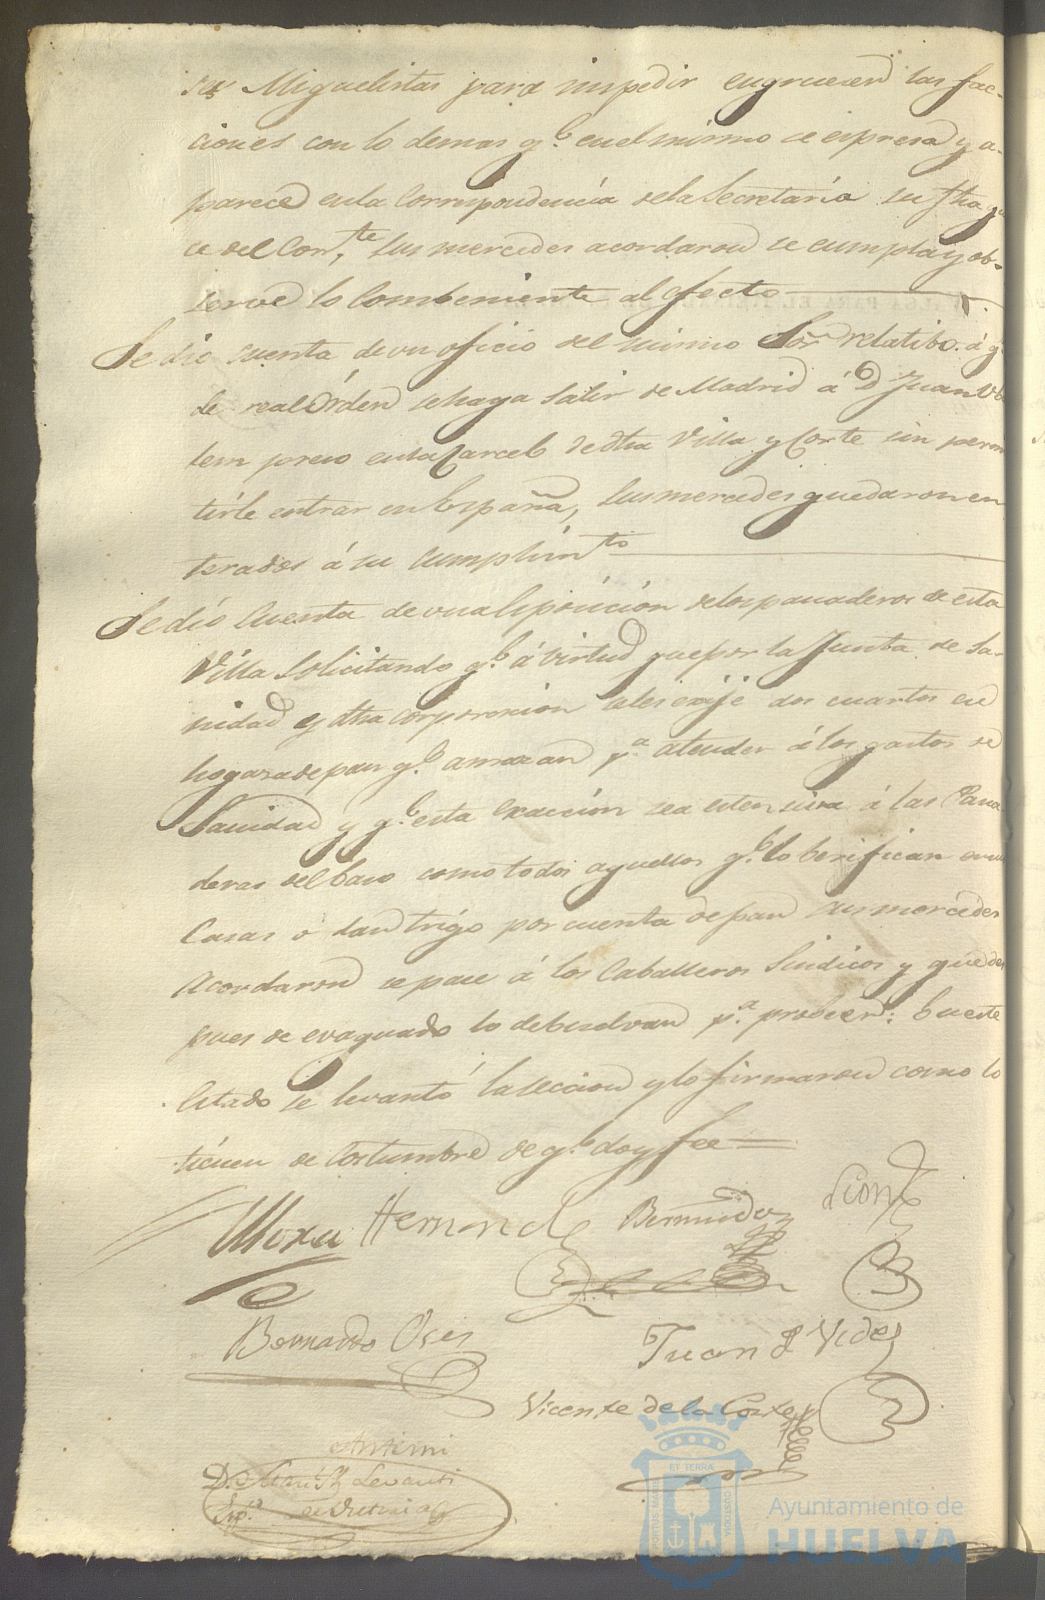 sus Miguelistas para impedir engruesen las fac-
ciones con lo demas q.e en el mismo se espresa y a-
parece en la Correspondencia de la Secretaria su fha
ce del Corr.te, sus mercedes acordaron se cumpla y ob-
serve lo combeniente al efecto
Se dio cuenta de un oficio del mismo Sor relatibo á q
de real Orden se haga salir de Madrid á D Juan
preso en la Carcel de dha Villa y Corte sin permi
tirle entrar en España, sus mercedes quedaron en
terados á su cumplim.to
Se dió Cuenta de una Esposicion de los panaderos de esta
Villa solicitando q.e á virtud que por la Junta de Sa-
nidad y dha corporacion se les exije dos cuartos en
hogaza de pan q.e amasan p.a atender á los gastos de
Sanidad y q.e esta exaccion sea estensiva á las Pana
deras del baso como todos aquellos q.e lo berifican en su
Casas o dan trigo por cuenta de pan sus mercedes
Acordaron se pase á los Caballeros Sindicos y que des
pues de evaquado lo debuelvan p.a probeer: En este
Estado se levantó la seccion y lo firmaron como lo
tienen de Costumbre de q.e doy fee
Mora Hernand Bermudez
Bernardo Juan J Vides
Vicente de la Corte
Ante mi
ET TERRAE
PORTUS MARIS
CUSTODIA
Ayuntamiento de
HUELVA